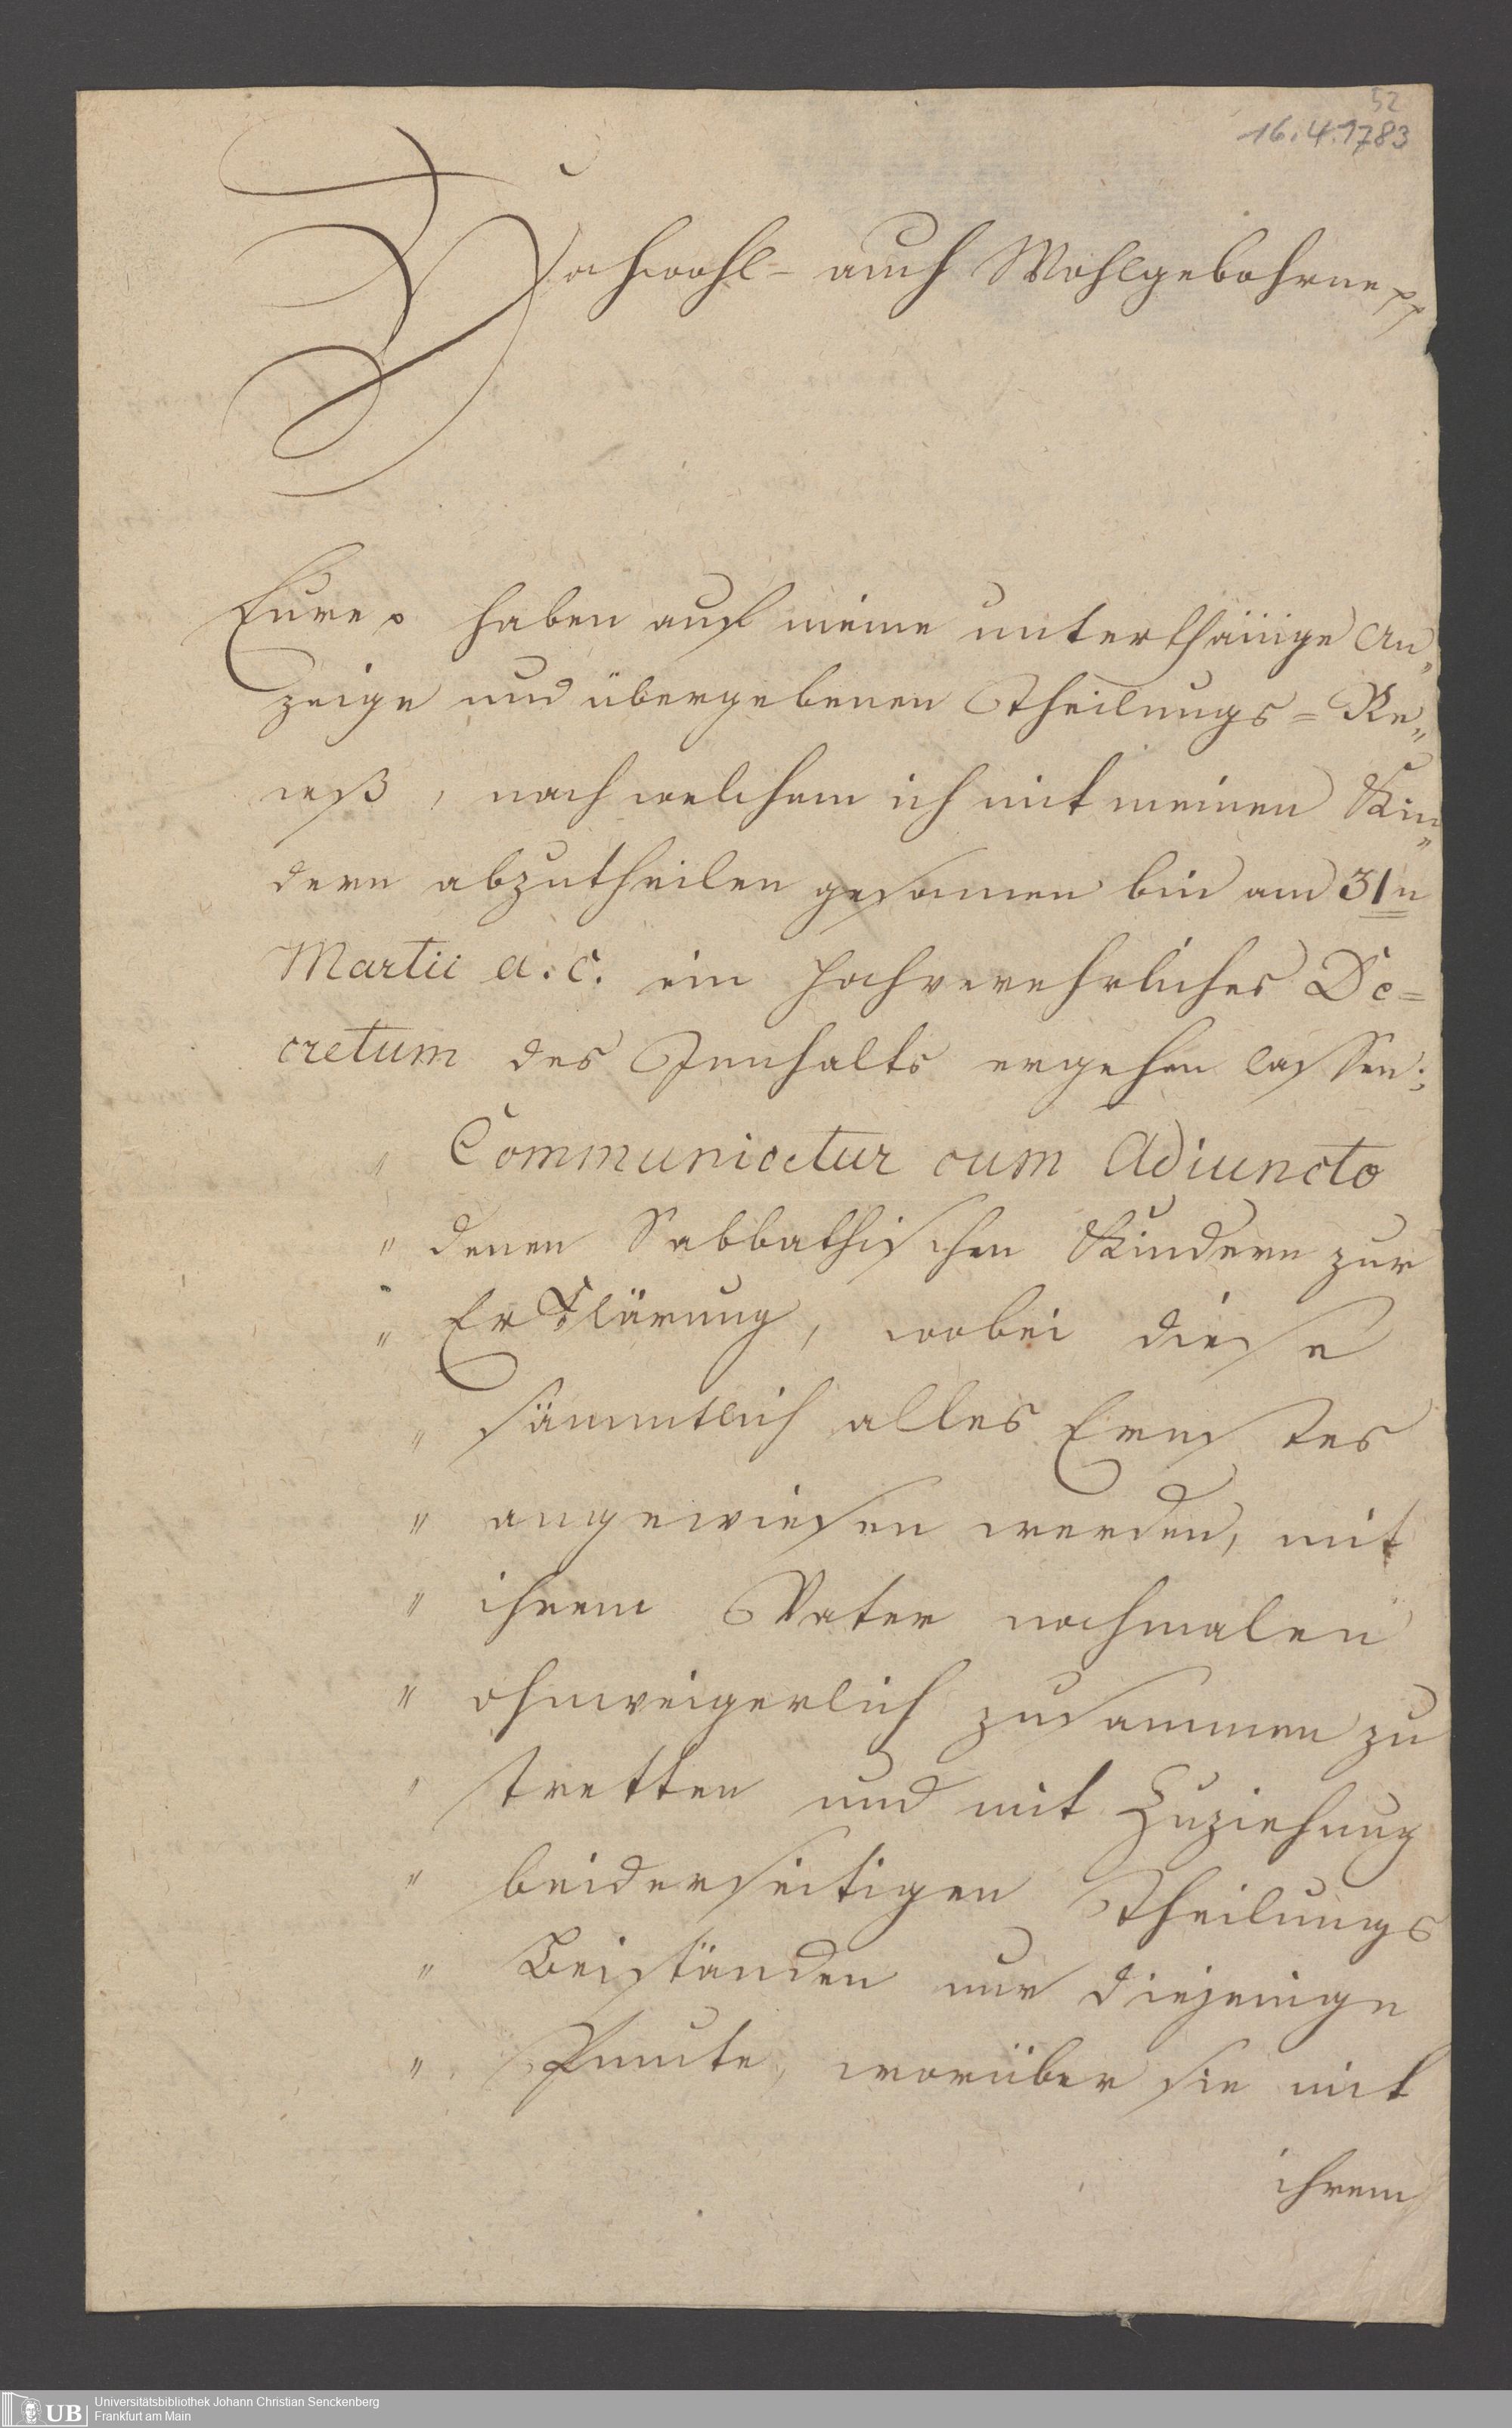 52
16.4.1783
Hochwohl- auch Wohlgebohrne pp
Eure p haben auf meine unterthänige An„
zeige und übergebenen Theilungs=Re„
ceß, nach welchem ich mit meinen Kin„
dern abzutheilen gesonnen bin am 31n
Martii a. c. ein Hochverehrliches De=
cretum des Innhalts ergehen lassen:
„ Communicetur cum Adiuncto
„ denen Sabbathischen Kindern zur
„ Erklärung, wobei diese
„ sämmtlich alles Ernstes
„ angewiesen werden, mit
„ ihrem Vater nochmalen
„ ohnweigerlich zusammen zu
„ tretten und mit Zuziehung
„ beiderseitigen Theilungs
„ Beiständen nur diejenige
„ Puncte, worüber sie mit
ihrem
UB
Universitätsbibliothek Johann Christian Senckenberg
Frankfurt am Main